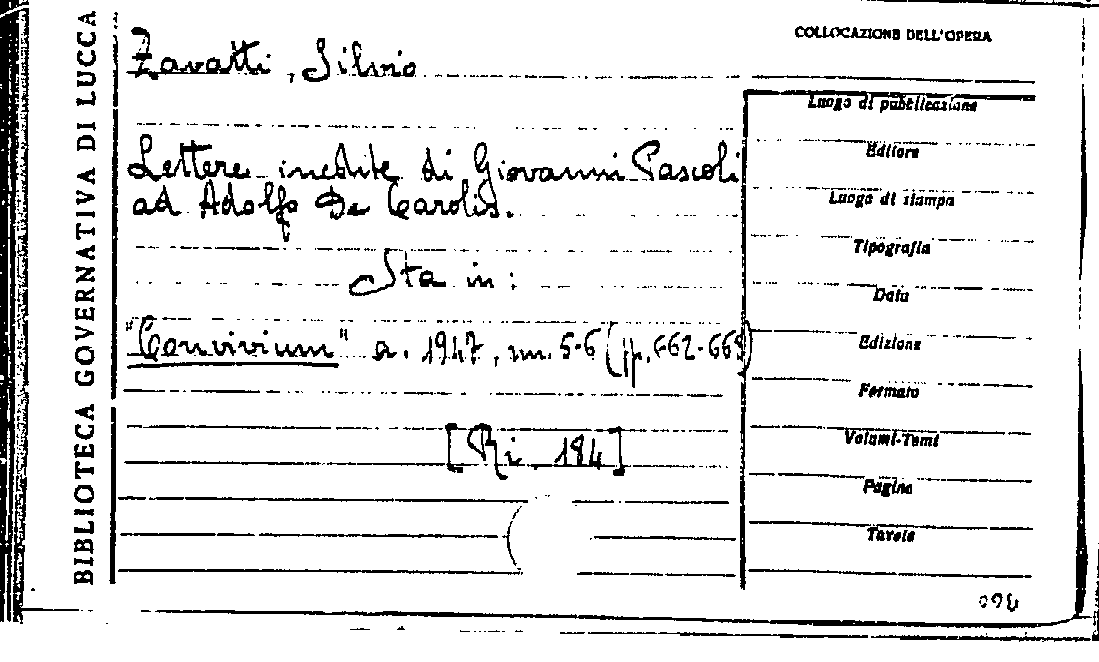 BIBLIOTECA GOVERNATIVA DI LUCCA
COLLOCAZIONE DELL'OPERA
Zavatti, Silvio
Lettere inedite di Giovanni Pascoli
ad Adolfo De Carolis.
Sta in:
"Convivium" a. 1947, nn. 5-6 (pp. 662-669)
[Ri. 184]
Luogo di pubblicazione
Editore
Luogo di stampa
Tipografia
Data
Edizione
Formato
Volumi-Tomi
Pagine
Tavole